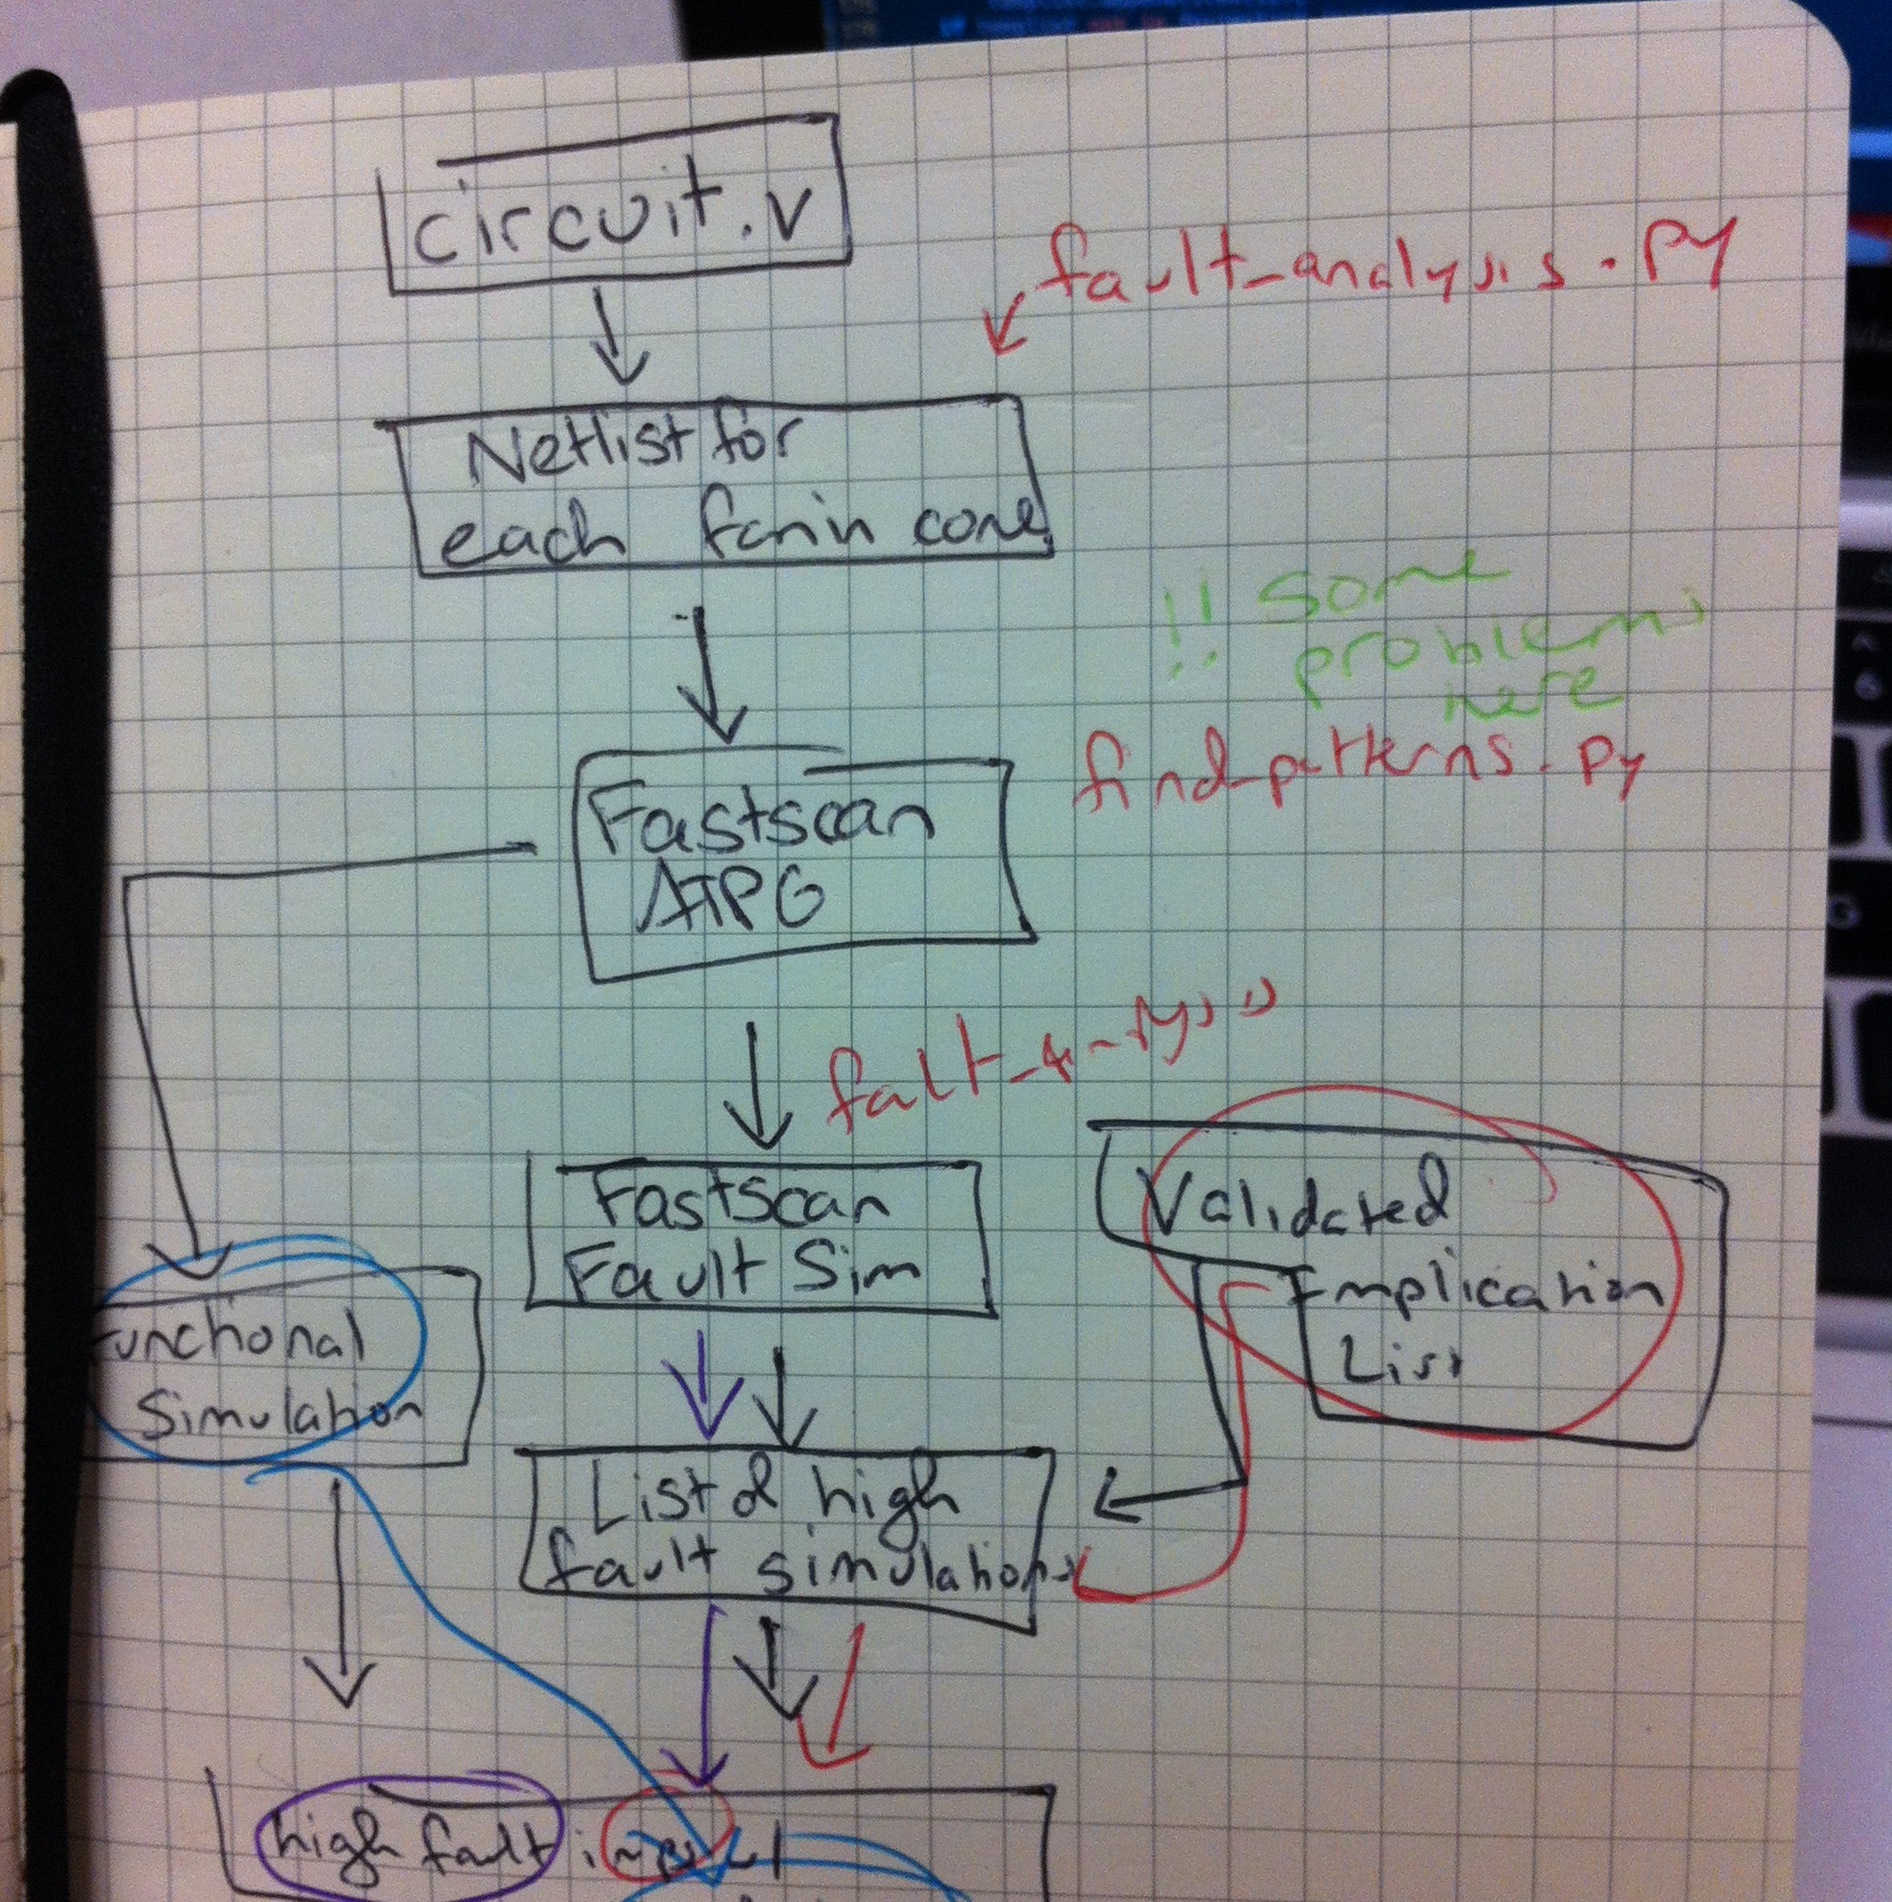 circuit.v
fault_analysis.py
Netlist for
each fanin cone
!! Some
problems
here
find_patterns.py
Fastscan
ATPG
Fastscan
Fault Sim
Validated
Implication
List
unctional
Simulation
List of high
fault simulations
high fault